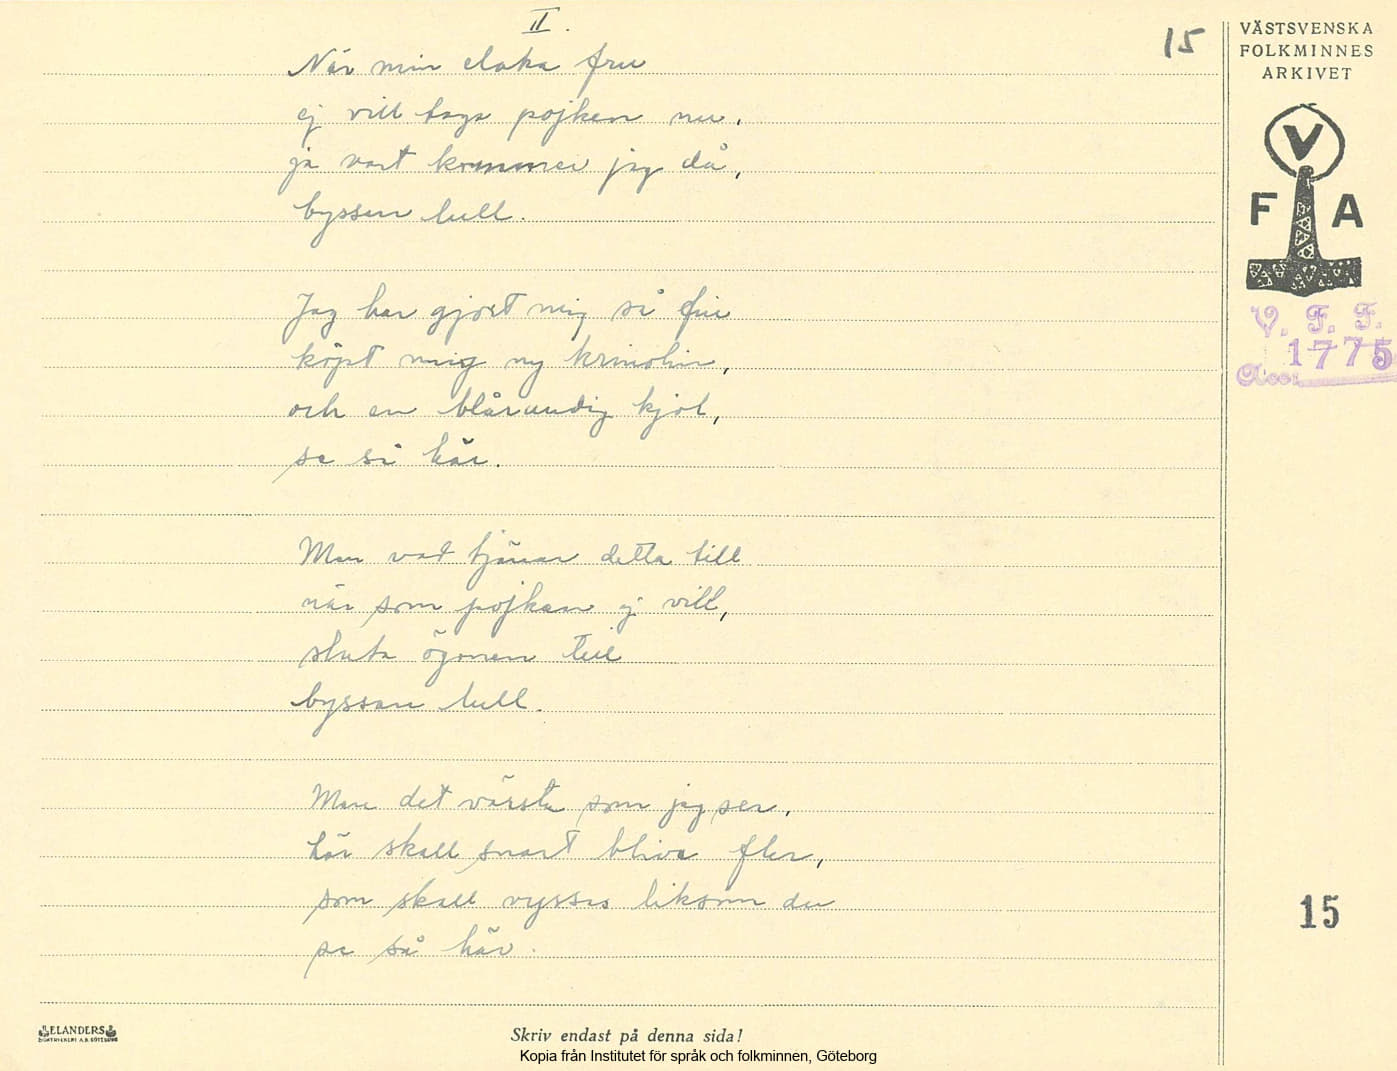 II.
15
När min eloka fru
ej vill taga pojken nu,
ja vart kommer jag då,
byssan lull.
Jag har gjort mig så fin
köpt mig ny krinolin,
och en blårandig kjol,
se så här.
Men vad tjänar detta till
när som pojken ej vill,
sluta ögonen till
byssan lull.
Men det värsta som jag ser,
här skall snart bliva fler,
som skall vyssas liksom du
se så här.
VÄSTSVENSKA
FOLKMINNES
ARKIVET
V
F A
V. F. F.
1775
Acc:
15
ELANDERS
Skriv endast på denna sida!
Kopia från Institutet för språk och folkminnen, Göteborg